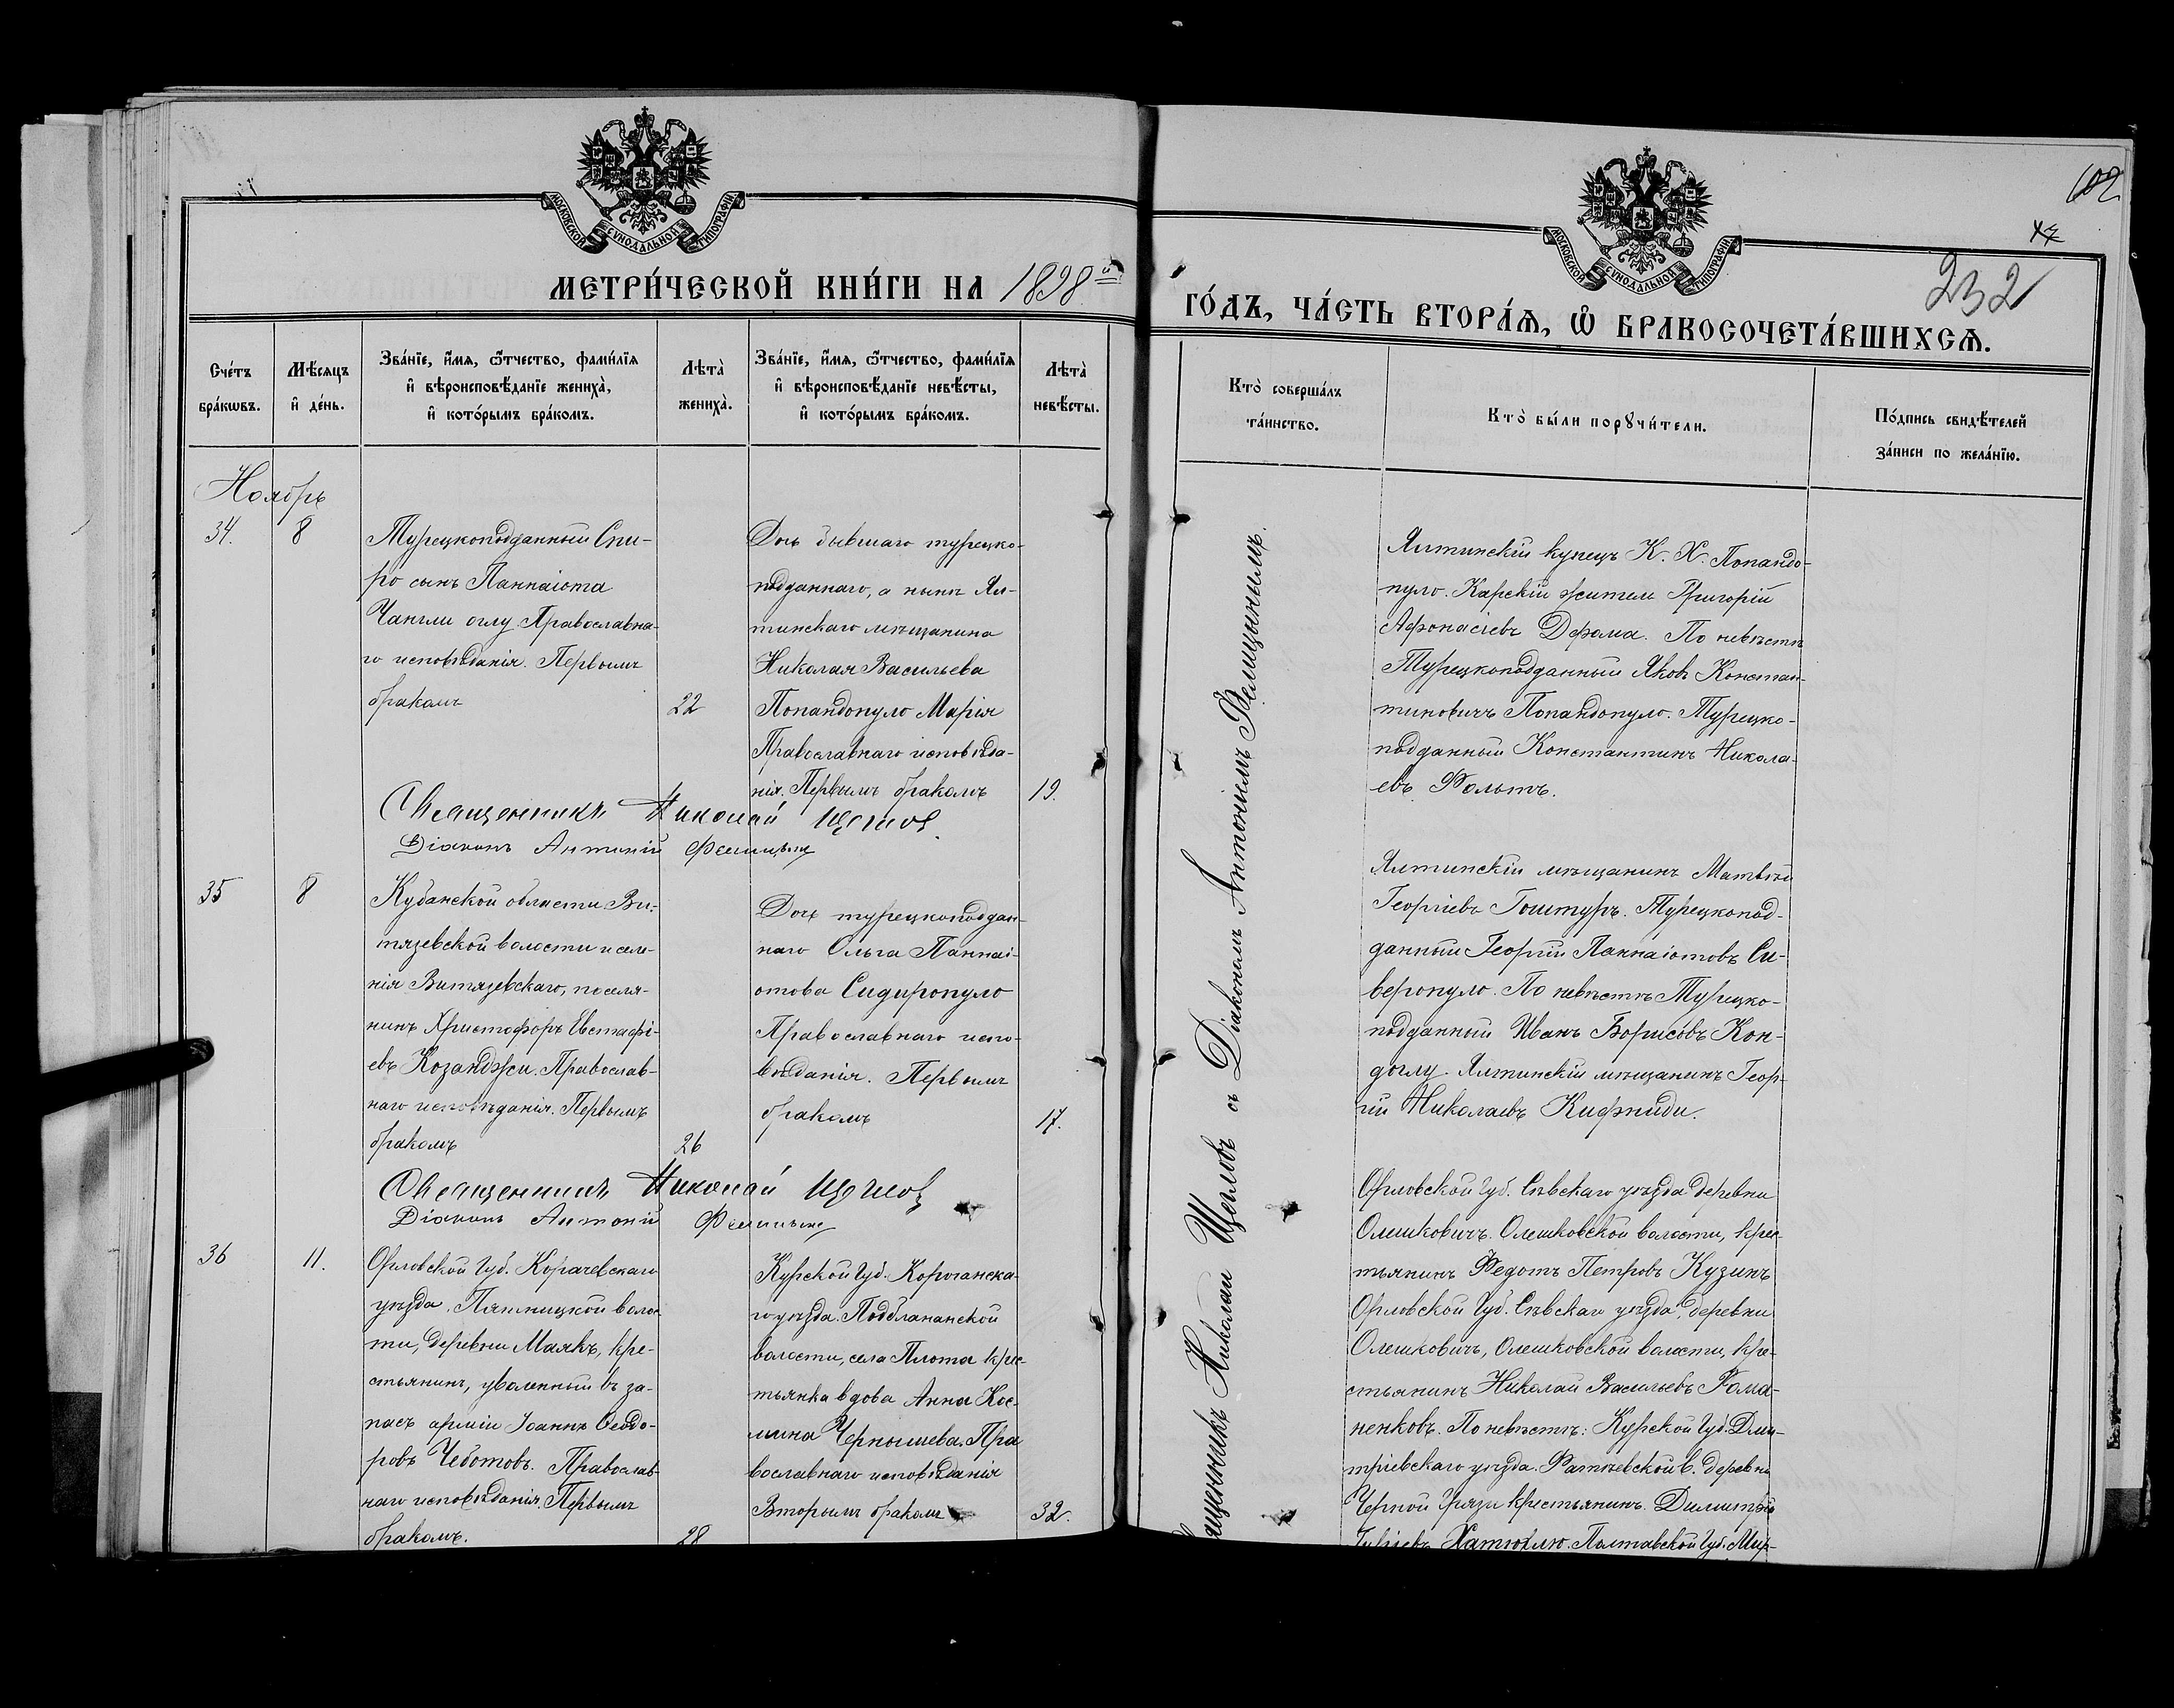 МОСКОВСКОЙ СѴНОДАЛЬНОЙ ТИПОГРАФІИ
МЕТРИ́ЧЕСКОЙ КНИ́ГИ НА 1898й
Сче́тъ бра́кѡвъ.
Мѣ́сяцъ и҆ де́нь.
Зва́нїе, и҆́мя, ѻ҆́тчество, фами́лїя
и҆ вѣроисповѣ́данїе жениха̀,
и҆ кото́рымъ бра́комъ.
Лѣта̀ жениха̀.
Зва́нїе, и҆́мя, ѻ҆́тчество, фами́лїя
и҆ вѣроисповѣ́данїе невѣ́сты,
и҆ кото́рымъ бра́комъ.
Лѣта̀ невѣ́сты.
Ноябрь
34. 8
Турецкоподданный Спи-
ро сынъ Паннаіота
Чангли оглу Православна-
го исповѣданія. Первымъ
бракомъ
22
Дочь бывшаго турецко-
подданнаго, а нынѣ Ял-
тинскаго мѣщанина
Николая Васильева
Попандопуло Марія
Православнаго исповѣда-
нія. Первымъ бракомъ
19.
Священникъ Николай Щегловъ
Діаконъ Антоній Фелицынъ
35 8
Кубанской области Ви-
тязевской волости и селе-
нія Витязевскаго, поселя-
нинъ Христофоръ Евстафі-
евъ Козанджи. Православ-
наго исповѣданія. Первымъ
бракомъ
26
Дочь турецкоподдан-
наго Ольга Паннаі-
отова Сидиропуло
Православнаго испо-
вѣданія. Первымъ
бракомъ
17.
Священникъ Николай Щегловъ
Діаконъ Антоній Фелицынъ
36 11.
Орловской Губ. Корачевскаго
уѣзда, Пятницкой волос-
ти, деревни Маякъ, кре-
стьянинъ, уволенный въ за-
пасъ арміи Іоаннъ Ѳеодо-
ровъ Чеботовъ. Православ-
наго исповѣданія. Первымъ
бракомъ.
28
Курской Губ. Корочанска-
го уѣзда.
волости, села Плота крес-
тьянка вдова Анна Кос-
мина Чернышева. Пра
вославнаго исповѣданія
Вторымъ бракомъ
32.
602
232
МОСКОВСКОЙ СѴНОДАЛЬНОЙ ТИПОГРАФІИ
ГО́ДЪ, ЧА́СТЬ ВТОРА́Ѧ, Ѡ҆ БРАКОСОЧЕТА́ВШИХСѦ.
Кто̀ соверша́лъ
та́инство.
Кто̀ бы́ли порꙋчи́тели.
По́дпись свидѣ́телей
за́писи по жела́нїю.
Николай Щегловъ съ Діакономъ Антоніемъ Фелицынымъ.
Ялтинскій купецъ К. Х. Попандо-
пуло. Карскій житель Григорій
Афонасіевъ Дефома. По невѣстѣ
Турецкоподданный Яковъ Констан-
тиновичъ Попандопуло. Турецко-
подданный Константинъ Никола-
евъ Фольтъ.
Ялтинскій мѣщанинъ Матвѣй
Георгіевъ Гоштуръ. Турецкопод-
данный Георгій Паннаіотовъ Си-
веропуло. По невѣстѣ Турецко-
подданный Иванъ Борисовъ Кон-
доглу. Ялтинскій мѣщанинъ Геор-
гій Николаевъ Кифниди.
Орловской Губ. Сѣвскаго уѣзда деревни
Олешковичъ. Олешковской волости, крес-
тьянинъ Федотъ Петровъ Кузинъ
Орловской Губ. Сѣвскаго уѣзда, деревни
Олешковичъ, Олешковской волости, кре-
стьянинъ Николай Васильевъ Рома-
ненковъ. По невѣстѣ: Курской Губ. Дми-
тріевскаго уѣзда. деревни
Черной Грязи крестьянинъ. Димитрій
Полтавской Губ. Мир-